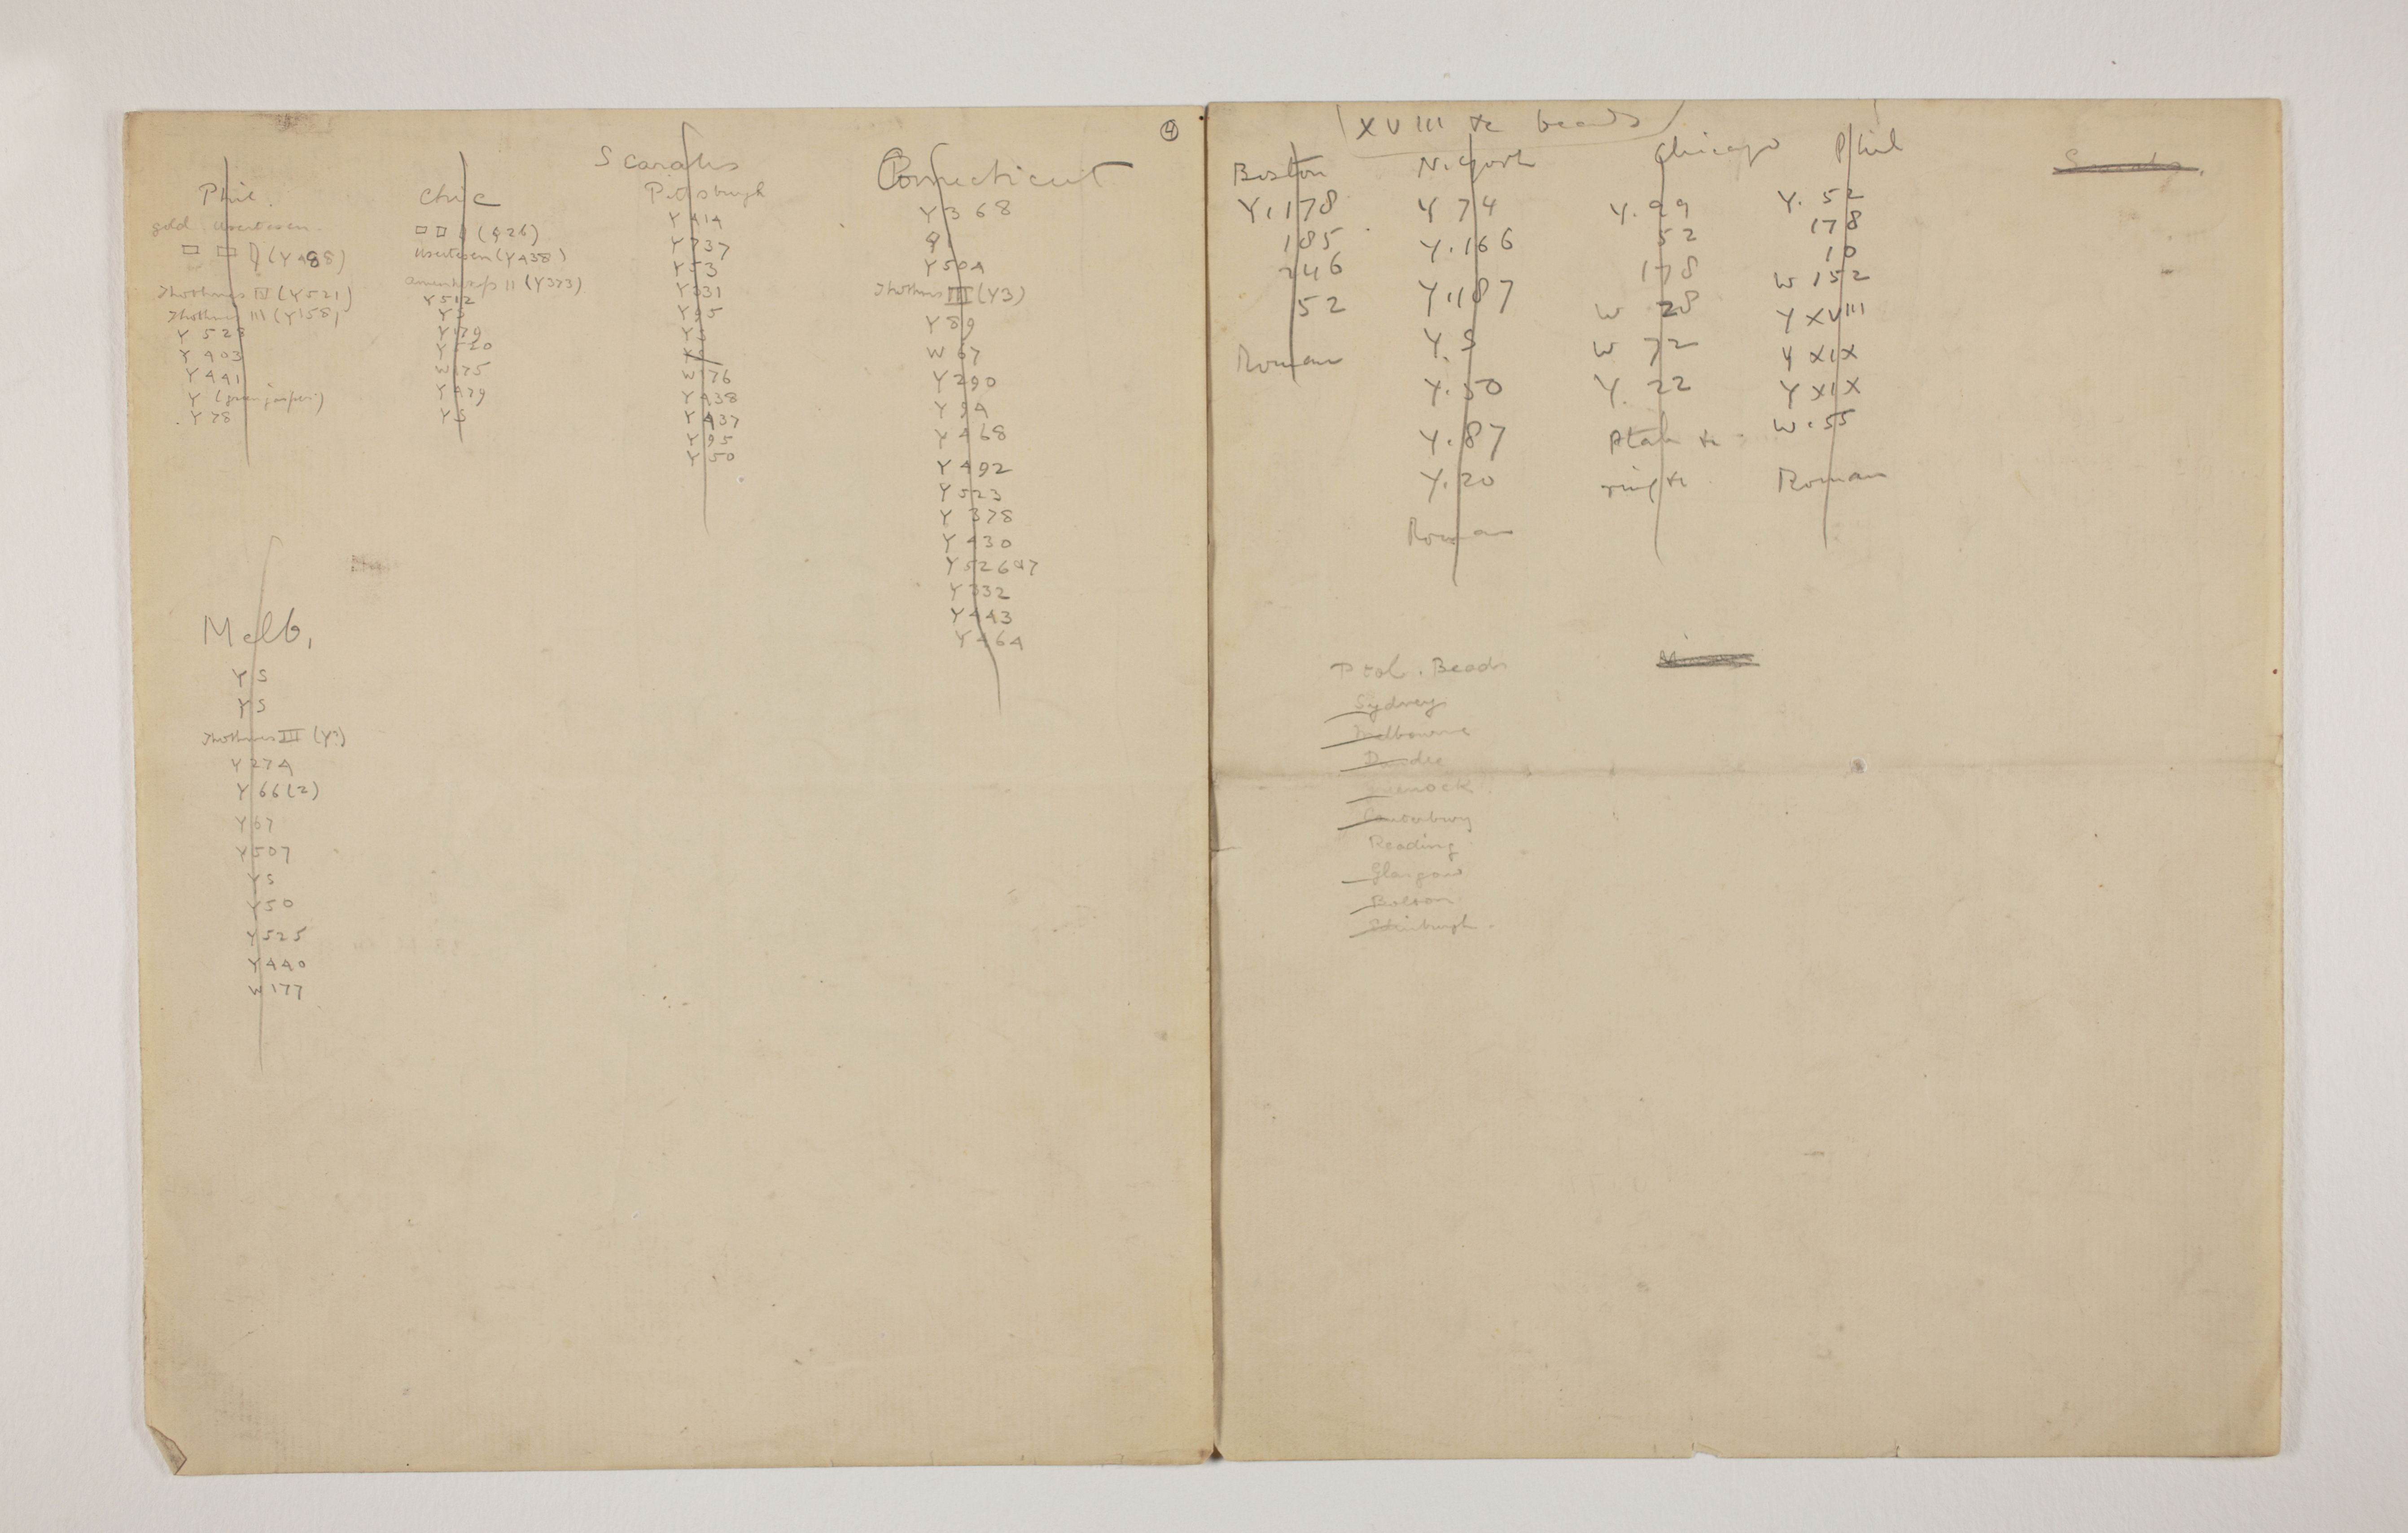 4
Scarabs
Phil.
gold Usertesen.
(Y488)
Thothmes IV (Y521)
Thothmes III (Y158)
Y 528
Y 403
Y 441
Y (green jasper)
Y 78
Chic
(426)
Usertesen (Y438)
Amenhotep II (Y373)
Y 512
Y S
Y 179
Y 520
W 175
Y 479
Y S
Pittsburgh
Y 414
Y 337
Y 53
Y 331
Y 95
Y S
W 176
Y 438
Y 437
Y 95
Y 50
Connecticut
Y 368
Y 504
Thothmes III (Y3)
Y 89
W 67
Y 290
Y 94
Y 468
Y 492
Y 523
Y 378
Y 430
Y 332
Y 443
Y 464
Melb.
Y S
Y S
Thothmes III
Y 274
Y 66 (2)
Y 67
Y 507
Y S
Y 50
Y 525
Y 440
W 177
XVIII &c beads
Boston
Y. 178
185
246
52
Roman
N. York
Y 74
Y. 166
Y. 187
Y. S
Y. 50
Y. 87
Y. 20
Roman
Chicago
Y. 29
52
178
W 28
W 72
Y. 22
Ptah &c
ring &c
Phil
Y. 52
178
10
W 152
Y XVIII
Y XIX
Y XIX
W. 55
Roman
Ptol. Beads
Sydney
Melbourne
Dundee
Greenock
Canterbury
Reading
Glasgow
Bolton
Edinburgh.